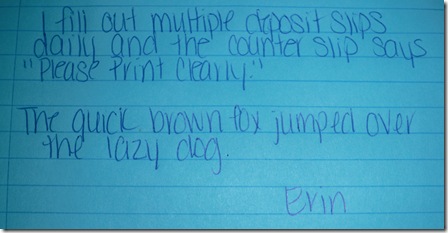 I fill out multiple deposit slips
daily and the counter slip says
"Please Print Clearly."
The quick brown fox jumped over
the lazy dog.
Erin